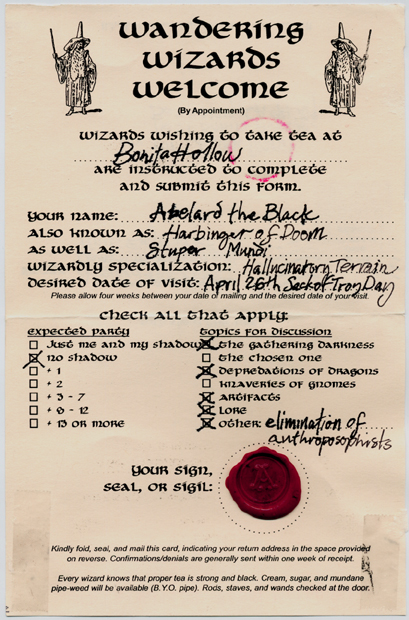 WANDERING
WIZARDS
WELCOME
(By Appointment)
WIZARDS WISHING TO TAKE TEA AT
Bonita Hollow
ARE INSTRUCTED TO COMPLETE
AND SUBMIT THIS FORM.
YOUR NAME: Abelard the Black
ALSO KNOWN AS: Harbinger of Doom
AS WELL AS: Stuper Mundi
WIZARDLY SPECIALIZATION: Hallucinatory Terrain
DESIRED DATE OF VISIT: April 26th Sack of Troy Day
Please allow four weeks between your date of mailing and the desired date of your visit.
CHECK ALL THAT APPLY:
EXPECTED PARTY
JUST ME AND MY SHADOW
NO SHADOW
+ 1
+ 2
+ 3 - 7
+ 8 - 12
+ 13 OR MORE
TOPICS FOR DISCUSSION
THE GATHERING DARKNESS
THE CHOSEN ONE
DEPREDATIONS OF DRAGONS
KNAVERIES OF GNOMES
ARTIFACTS
LORE
OTHER: elimination of
anthroposophists
YOUR SIGN,
SEAL, OR SIGIL:
Kindly fold, seal, and mail this card, indicating your return address in the space provided
on reverse. Confirmations/denials are generally sent within one week of receipt.
Every wizard knows that proper tea is strong and black. Cream, sugar, and mundane
pipe-weed will be available (B.Y.O. pipe). Rods, staves, and wands checked at the door.